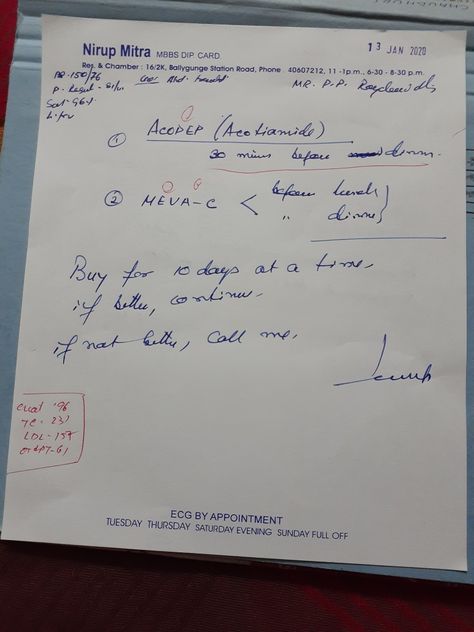 Nirup Mitra MBBS DIP CARD.
13 JAN 2020
Res. & Chamber : 16/2K, Ballygunge Station Road, Phone : 40607212, 11 -1p.m., 6-30 - 8-30 p.m.
BP-150/76
MR. P.P.
① ACODEP (Acotiamide)
30 mins before dinner
② MEVA-C < before lunch
" dinner }
Buy for 10 days at a time,
if better, continue.
if not better, call me.
Creat '96
TC - 231
LDL - 157
ECG BY APPOINTMENT
TUESDAY THURSDAY SATURDAY EVENING SUNDAY FULL OFF